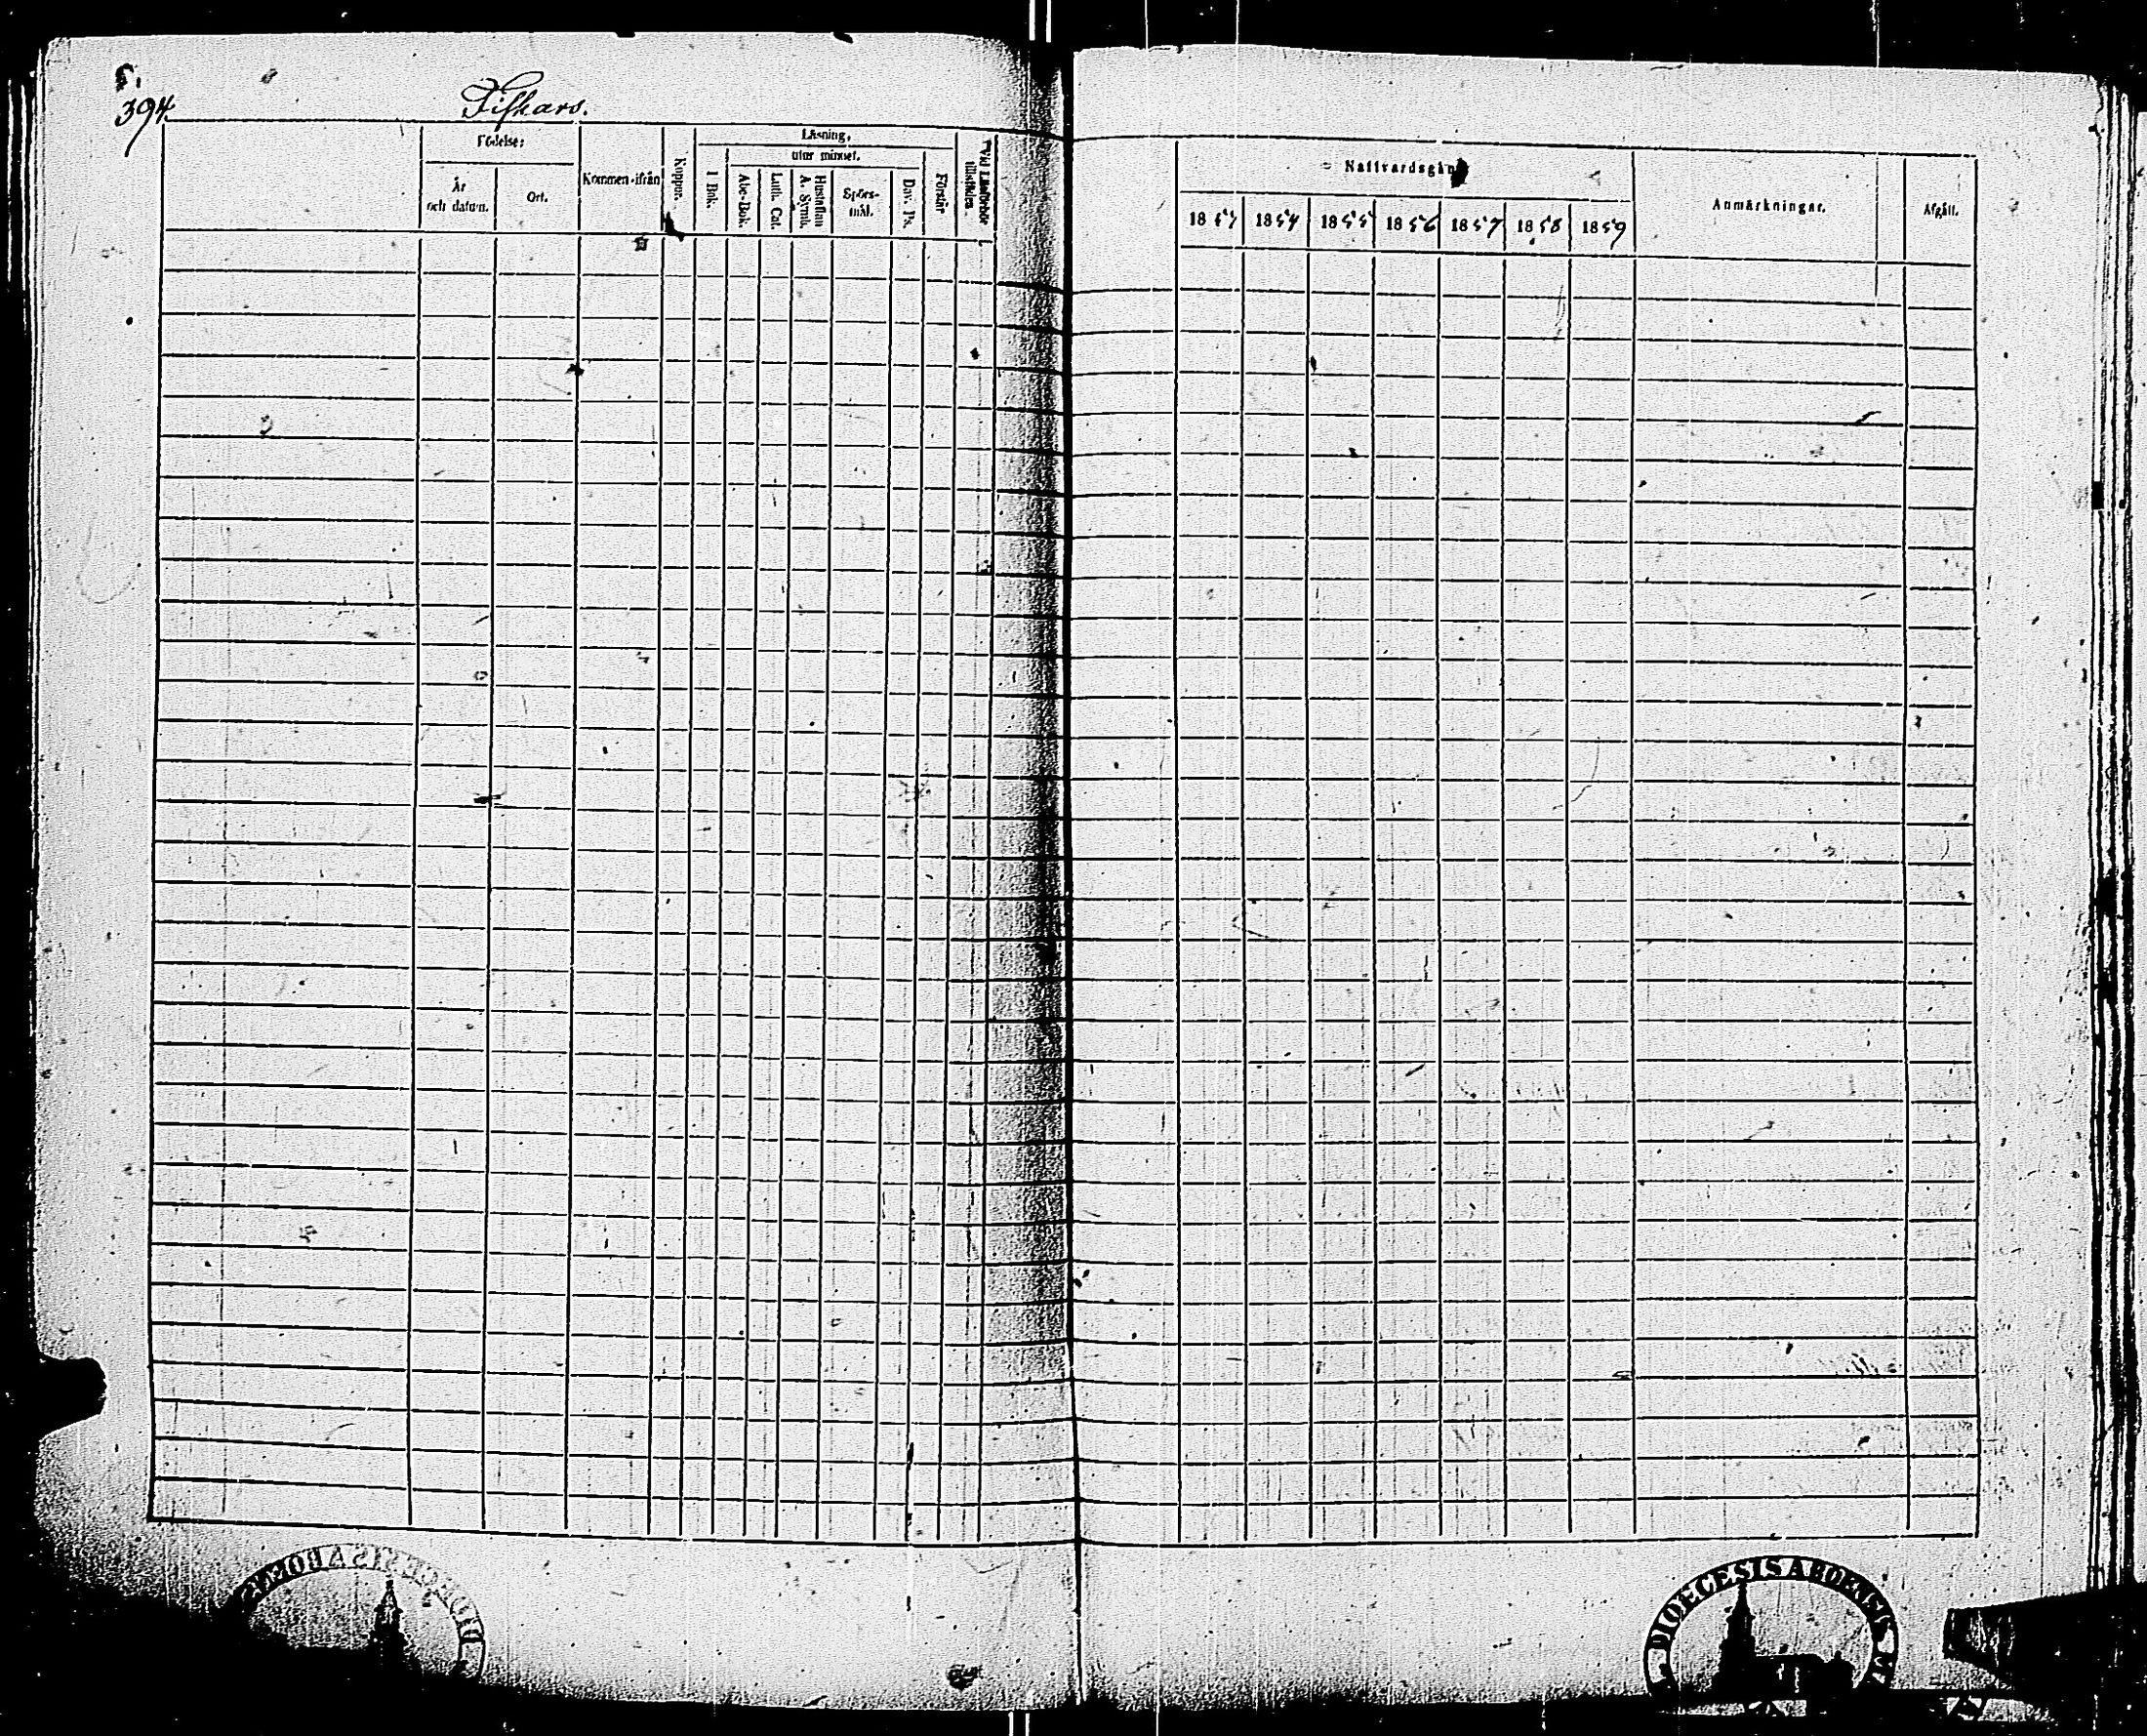 394.
Fiskars.
Födelse:
År och datum.
Ort.
Kommen ifrån
Koppor.
Läsning,
utur minnet.
I Bok.
Abc-Bok.
Luth. Cat.
Hustaflan A. Symb.
Spörsmål.
Dav. Ps.
Förstår
Vid Läsförhör tillstädes.
Nattvardsgång
1853 1854 1855 1856 1857 1858 1859
Anmärkningar.
Afgått.
DIOECESIS ABOENSIS